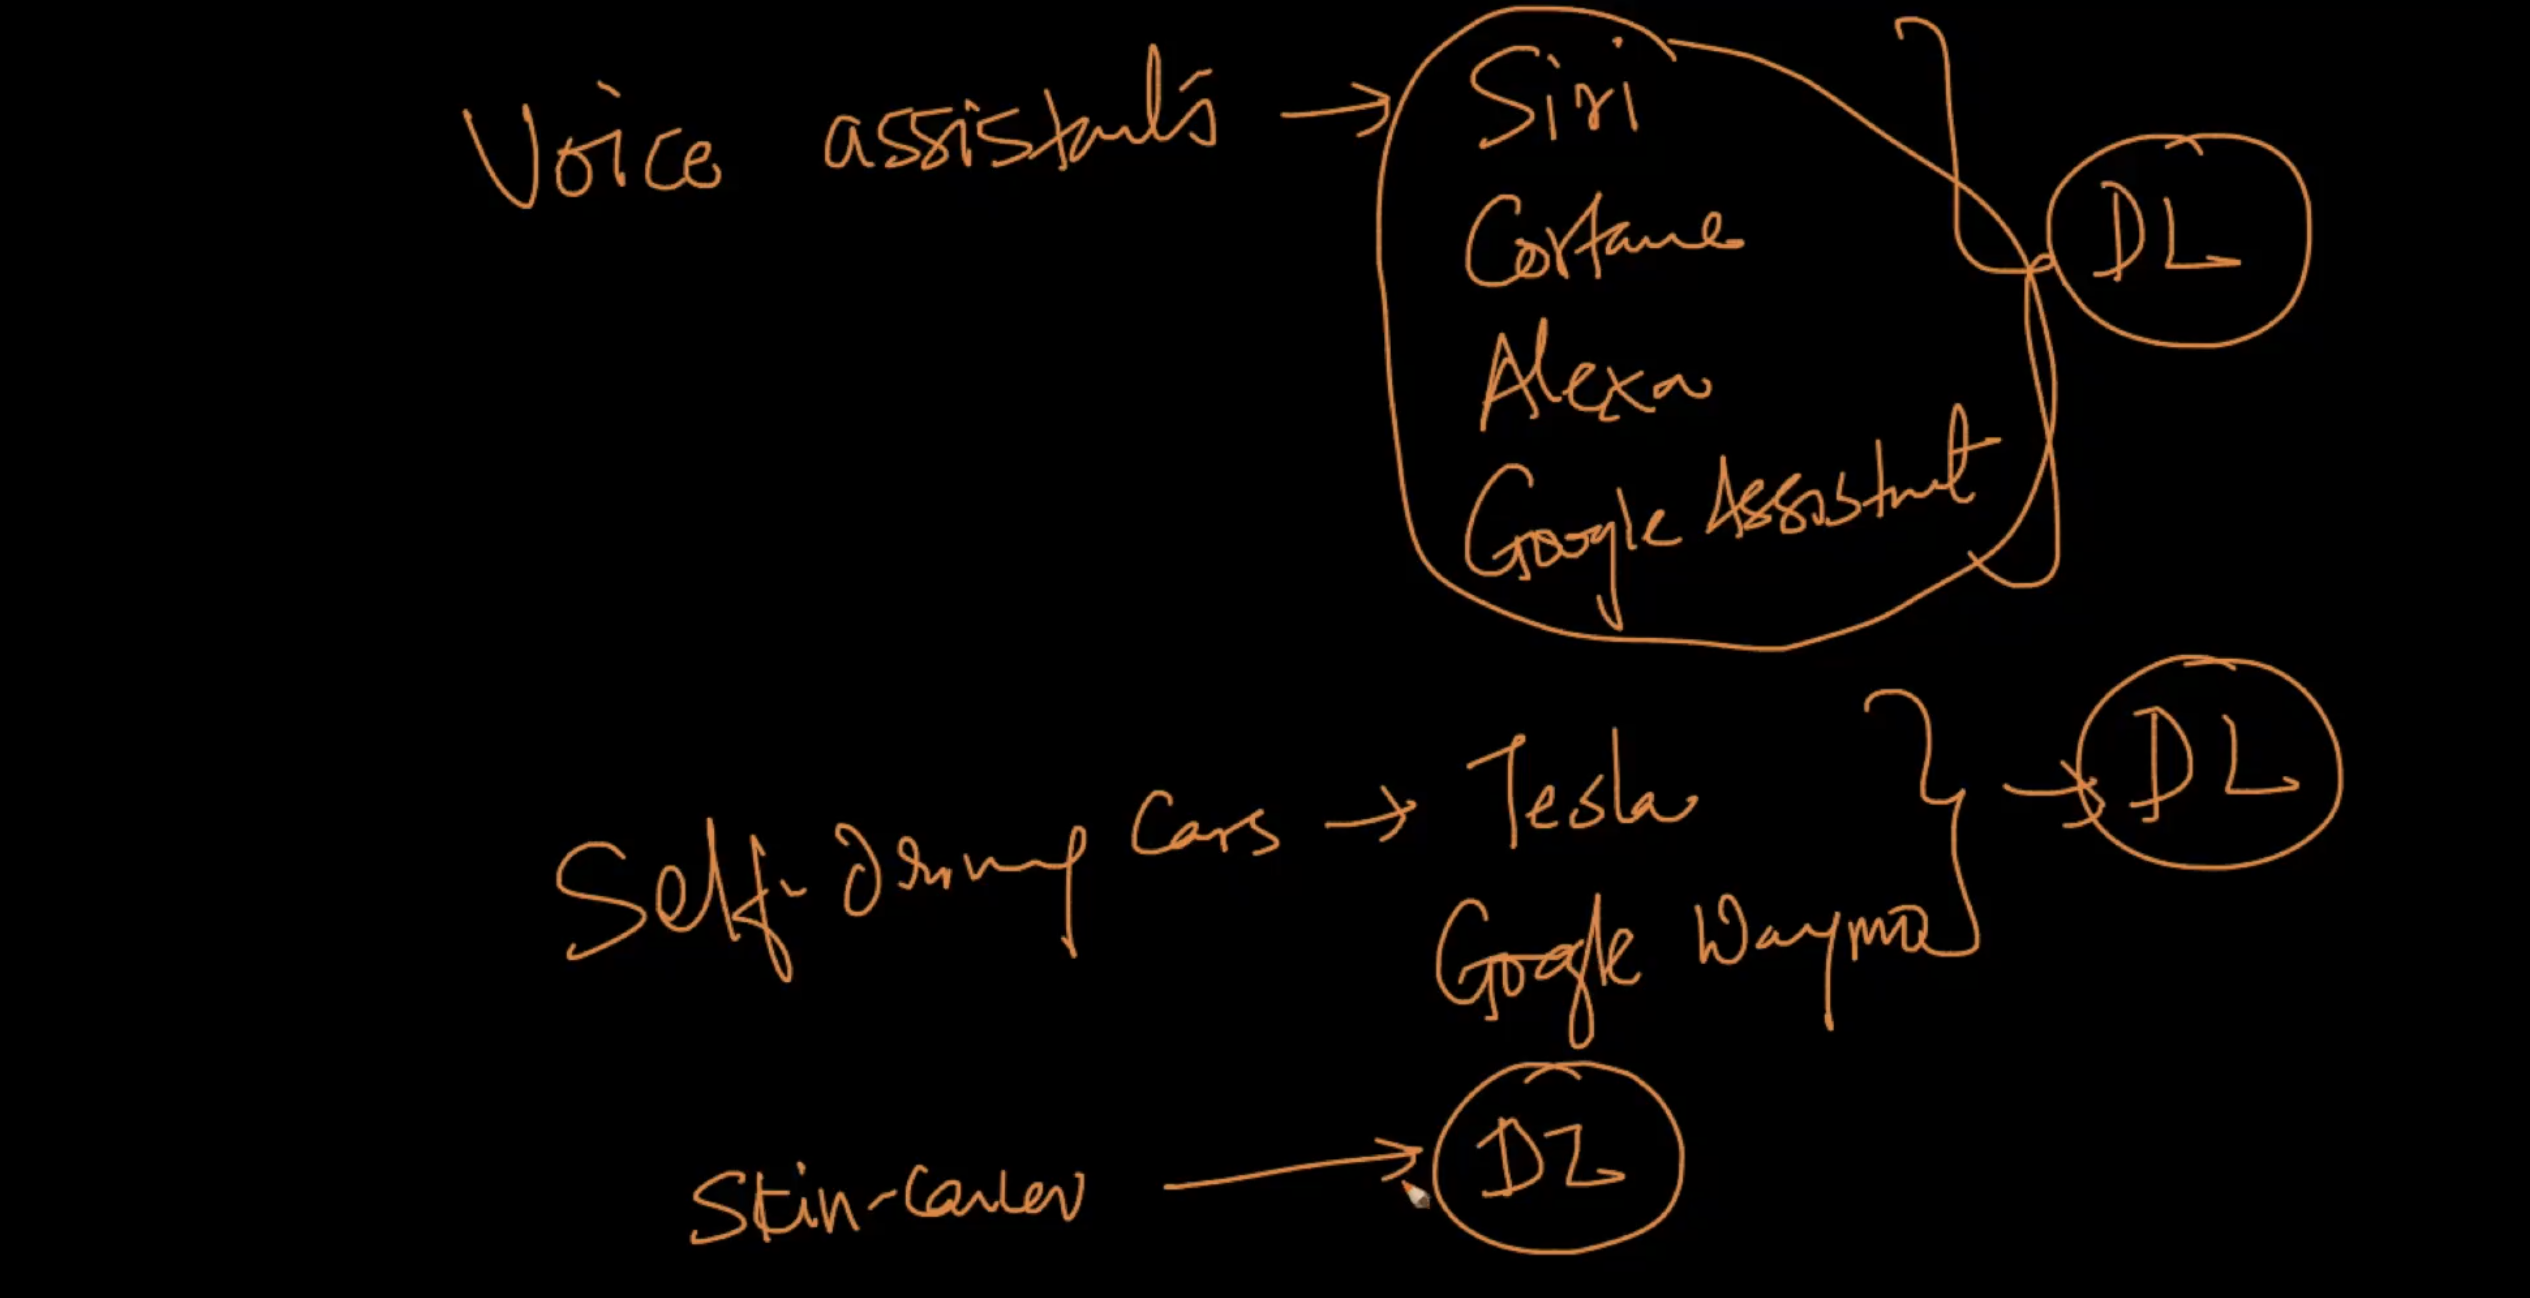 Voice assistants → Siri
Cortana
Alexa
Google Assistant
DL
Self-driving Cars → Tesla
Google Waymo
→ DL
Skin-Cancer → DL